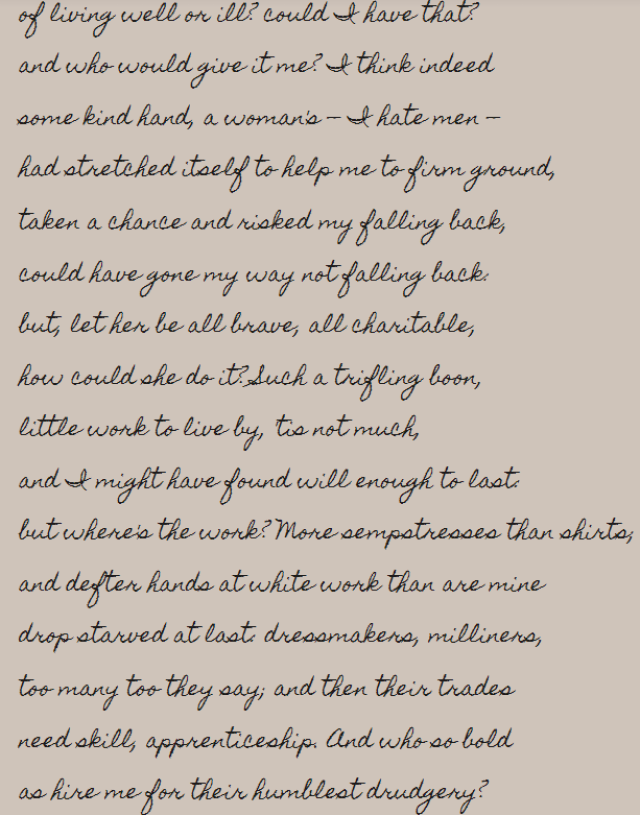 of living well or ill? could I have that?
and who would give it me? I think indeed
some kind hand, a woman's – I hate men –
had stretched itself to help me to firm ground,
taken a chance and risked my falling back,
could have gone my way not falling back:
but, let her be all brave, all charitable,
how could she do it? Such a trifling boon,
little work to live by, 'tis not much,
and I might have found will enough to last:
but where's the work? More sempstresses than shirts;
and defter hands at white work than are mine
drop starved at last: dressmakers, milliners,
too many too they say; and then their trades
need skill, apprenticeship. And who so bold
as hire me for their humblest drudgery?